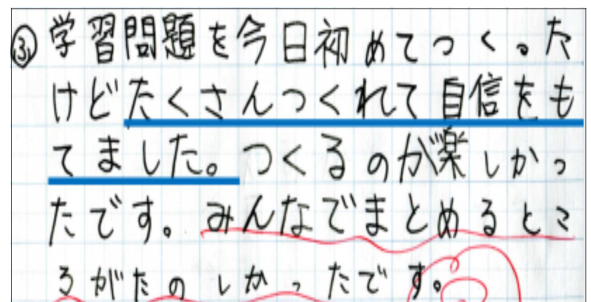 ㋫学習問題を今日初めてつく。た
けどたくさんつくれて自信をも
てました。つくるのが楽しかっ
たです。みんなでまとめるとこ
ろがたのしかったです。